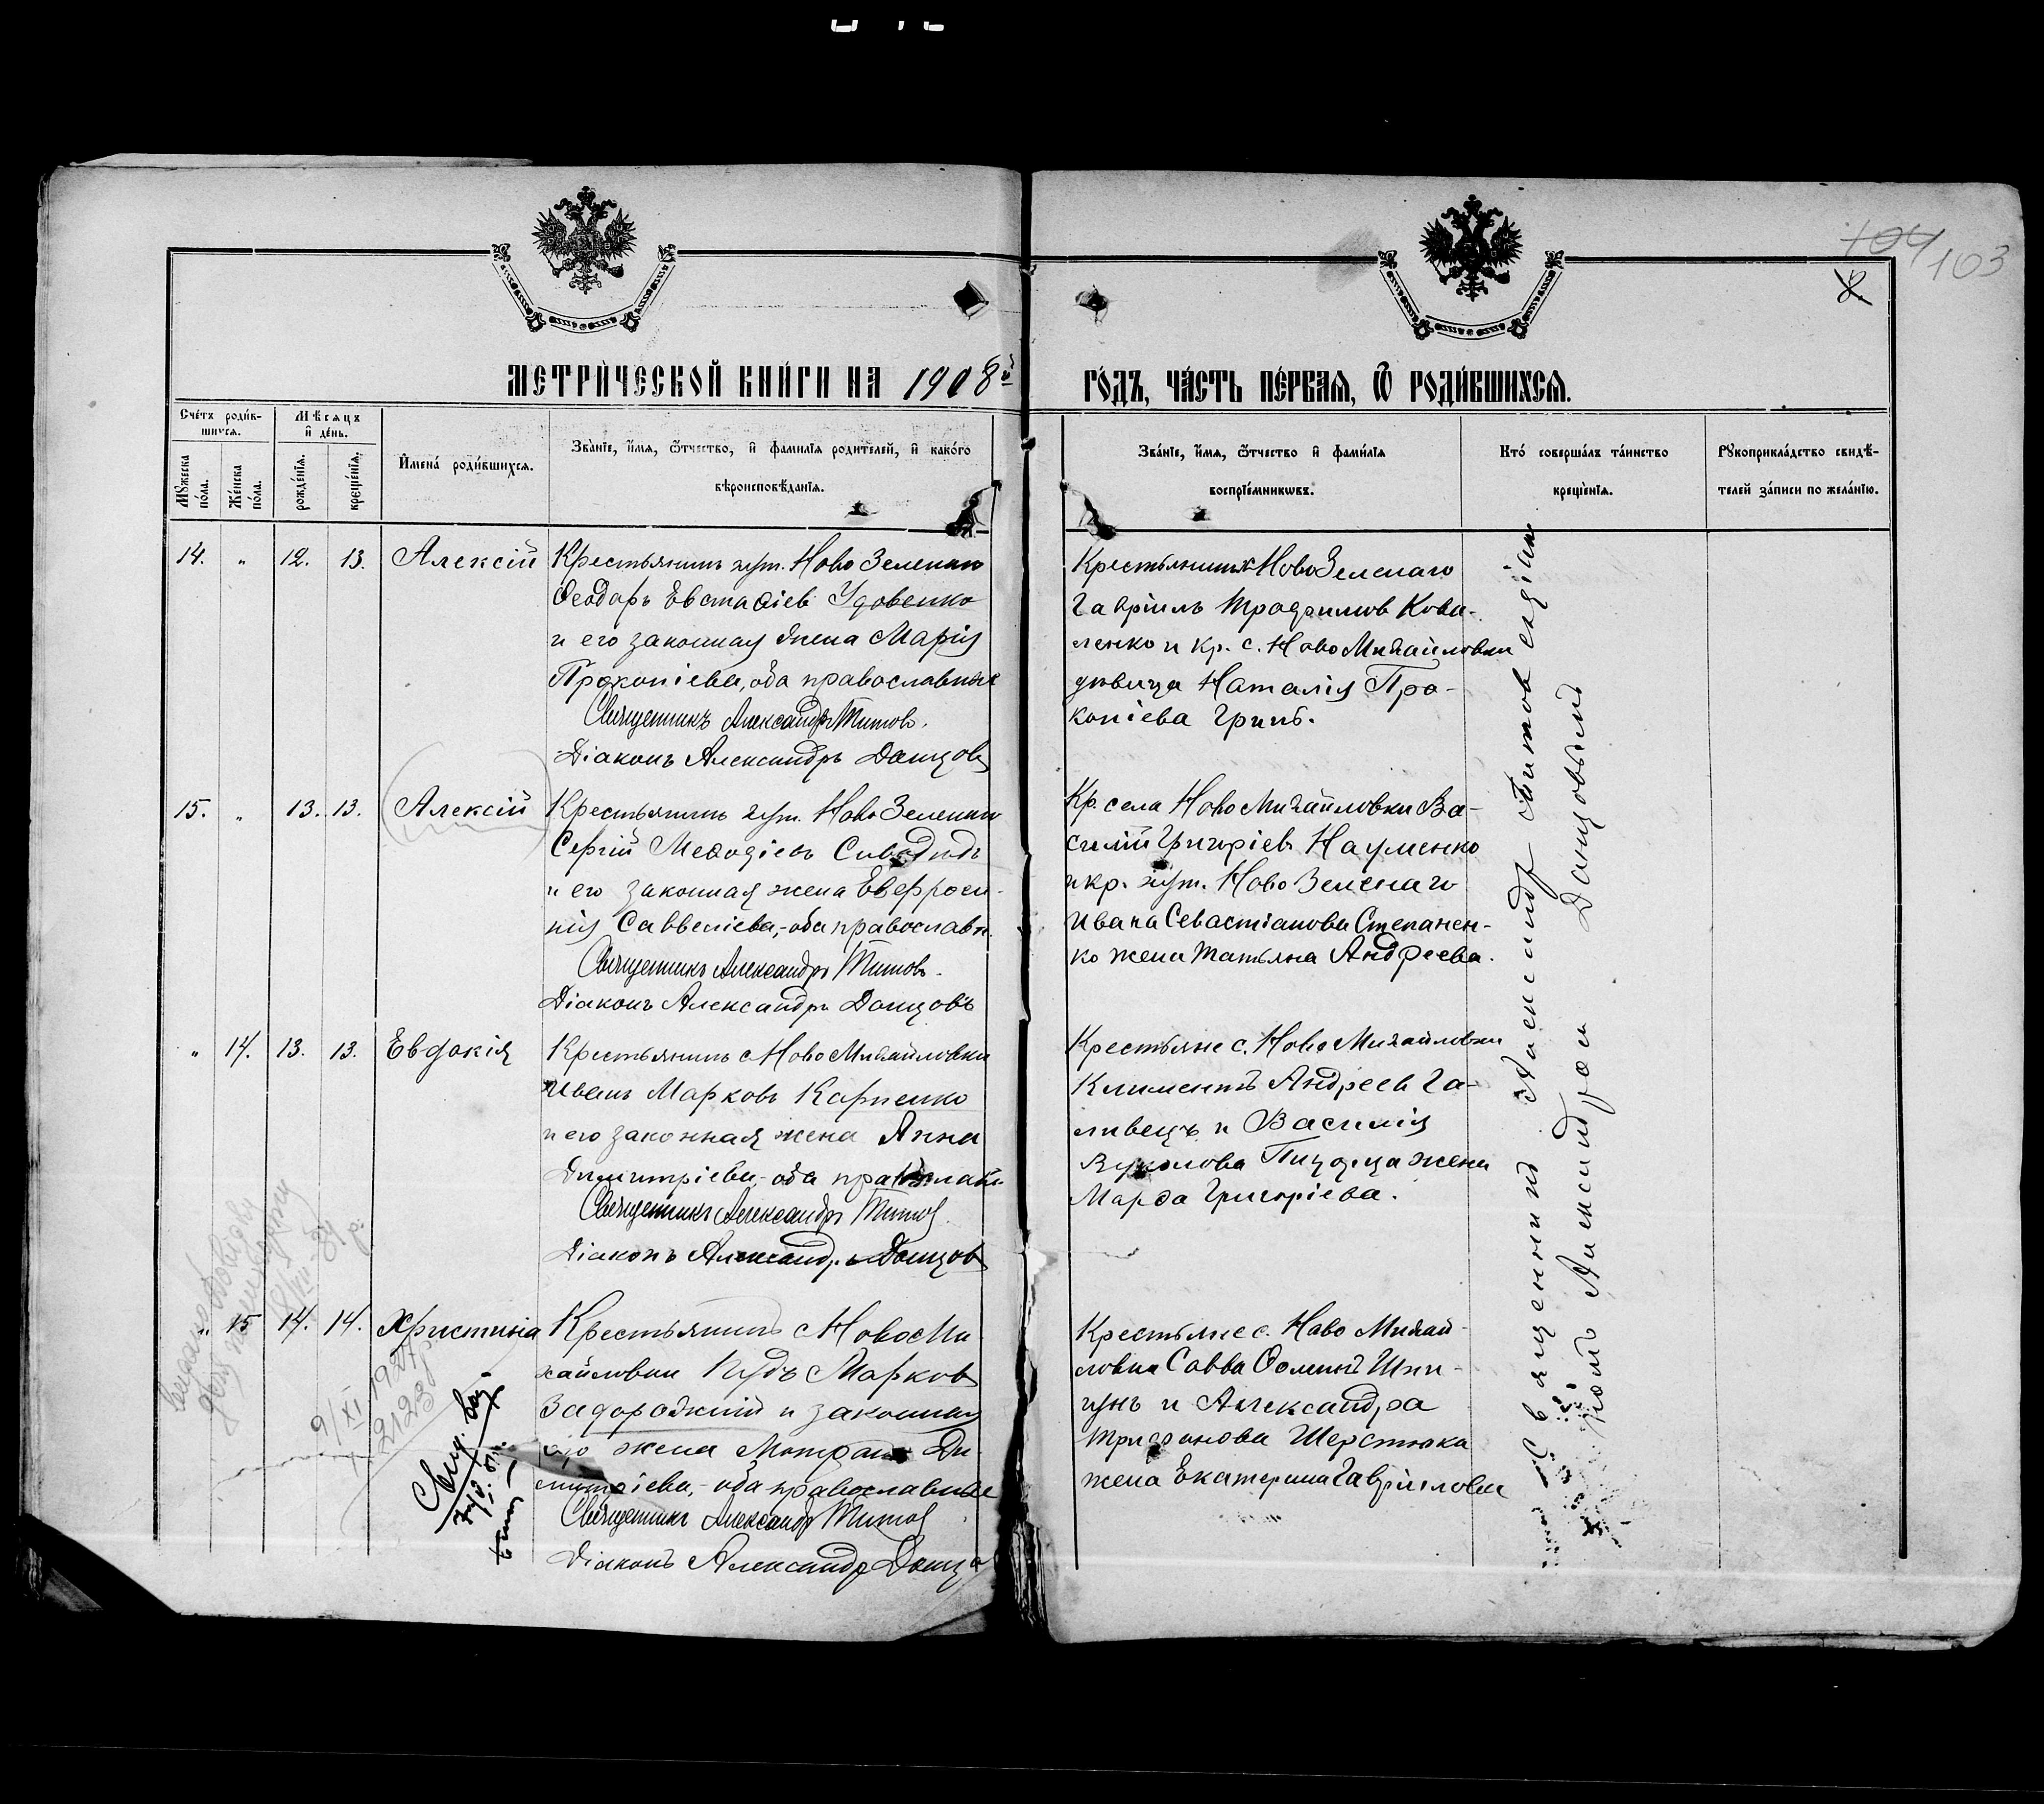 104 103
8.
МЕТРИ́ЧЕСКОЙ КНИ́ГИ НА 1908й ГО́ДЪ, ЧА́СТЬ ПЕ́РВАЯ, Ѿ РОДИ́ВШИХСЯ.
Сче́тъ роди́в-
шихся.
Мѣ́сяцъ
и҆ де́нь.
Мꙋ́жеска по́ла.
Же́нска по́ла.
рожде́нїя.
креще́нїя.
И҆мена̀ роди́вшихся.
Зва́нїе, и҆́мя, ѻ҆́тчество, и҆ фами́лїя роди́телей, и҆ како́гѡ
вѣроисповѣ́данїя.
Зва́нїе, и҆́мя, ѻ҆́тчество и҆ фами́лїя
воспрїе́мникѡвъ.
Кто̀ соверша́лъ та́инство
креще́нїя.
Рꙋкоприкла́дство свидѣ́-
телей за́писи по жела́нїю.
14. " 12. 13. Алексій
Крестьянинъ хут. Ново Зеленаго
Ѳеодоръ Евстаѳіев Удовенко
и его законная жена Марія
Прокопіева, оба православные
Священникъ Александръ Титовъ.
Діаконъ Александръ Донцов
Крестьянинъ Ново Зеленаго
Гавріилъ Трофимов Кова-
ленко и кр. с. Ново Михайловки
дѣвица Наталія Про-
копіева Гринь.
15. " 13. 13. Алексій
Крестьянинъ хут. Ново Зеленаго
Сергій Меѳодіевъ Сиводѣдъ
и его законная жена Евфроси-
нія Саввеліева,- оба православн.
Священникъ Александръ Титовъ.
Діаконъ Александръ Донцовъ
Кр. села Ново Михайловки Ва-
силій Григоріев Науменко
и кр. хут. Ново Зеленаго
Ивана Севастіанова Степанен-
ко жена Татьяна Андреева.
" 14. 13. 13. Евдокія
Крестьянинъ с Ново Михайловки
Иванъ Марковъ Карпенко
и его законная жена Анна
Димитріева,- оба православн
Священникъ Александръ Титов
Діаконъ Александръ Донцов
Крестьяне с. Ново Михайловки
Климентъ Андреев Га-
ливецъ и Василія
Вуколова жена
Марѳа Григоріева.
" 15 14. 14. Христинія
Крестьянинъ с Ново Ми-
хайловки Іудъ Марков
Задорожній и законная
его жена Матрона Ди-
митріева,- оба православные
Священникъ Александръ Титов
Діаконъ Александръ Донцо
Крестьяне с. Ново Михай-
ловки Савва Ѳоминъ
и Александра
Трифонова Шерстюка
жена Екатерина Гавріилова
Священникъ Александръ Титов с діа-
кономъ Александром Донцовым
9/XI 1927
2123